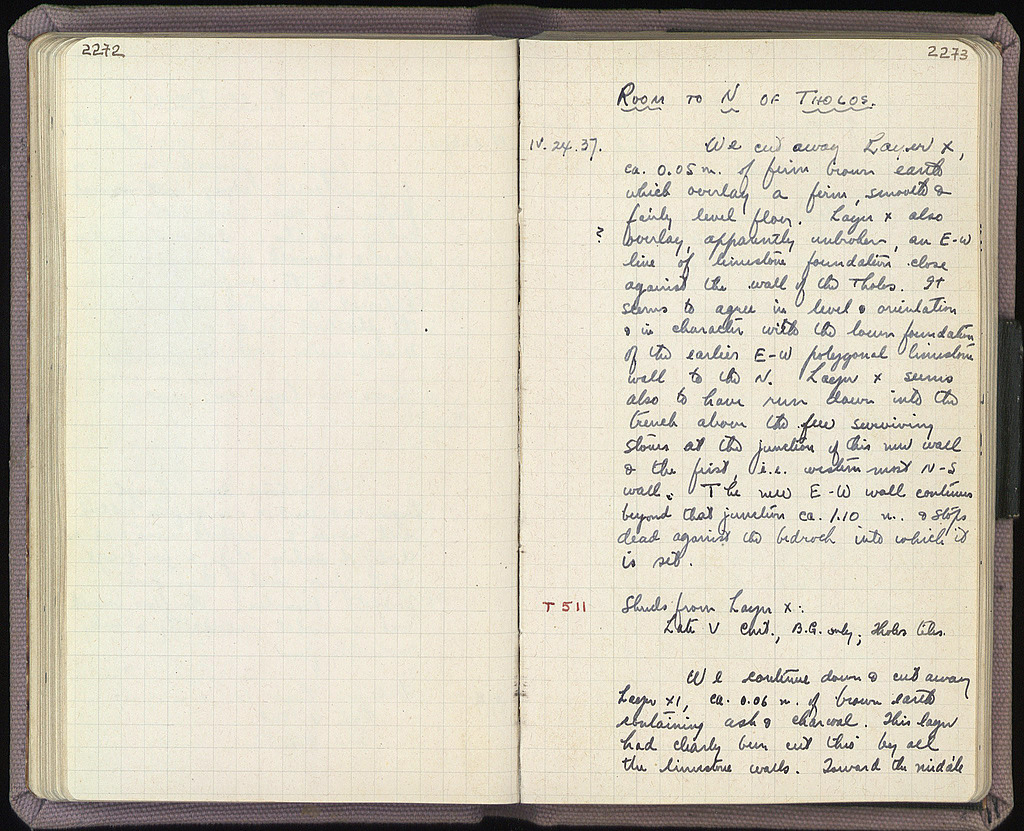 2272
2273
Room to N of Tholos.
IV.24.37.
We cut away Layer X,
ca. 0.05 m. of firm brown earth
which overlay a firm, smooth &
fairly level floor. Layer X also
?
overlay, apparently unbroken, an E-W
line of limestone foundation close
against the wall of the Tholos. It
seems to agree in level & orientation
& in character with the lower foundation
of the earlier E-W polygonal limestone
wall to the N. Layer X seems
also to have run down into the
trench above the few surviving
stones at the junction of this new wall
& the first, i.e. westernmost N-S
wall. The new E-W wall continues
beyond that junction ca. 1.10 m. & stops
dead against the bedrock into which it
is set.
T 511
Sherds from Layer X:
Late V cent., B.G. only; Tholos tiles.
We continue down & cut away
Layer XI, ca. 0.06 m. of brown earth
containing ash & charcoal. This layer
had clearly been cut thro' by all
the limestone walls. Toward the middle